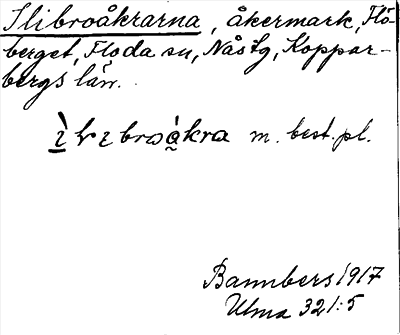 Ilibroåkrarna, åkermark, Flö-
berget, Floda sn, Nåstg, Koppar-
bergs län.
m. best. pl.
Bannbers 1917
Ulma 321:5